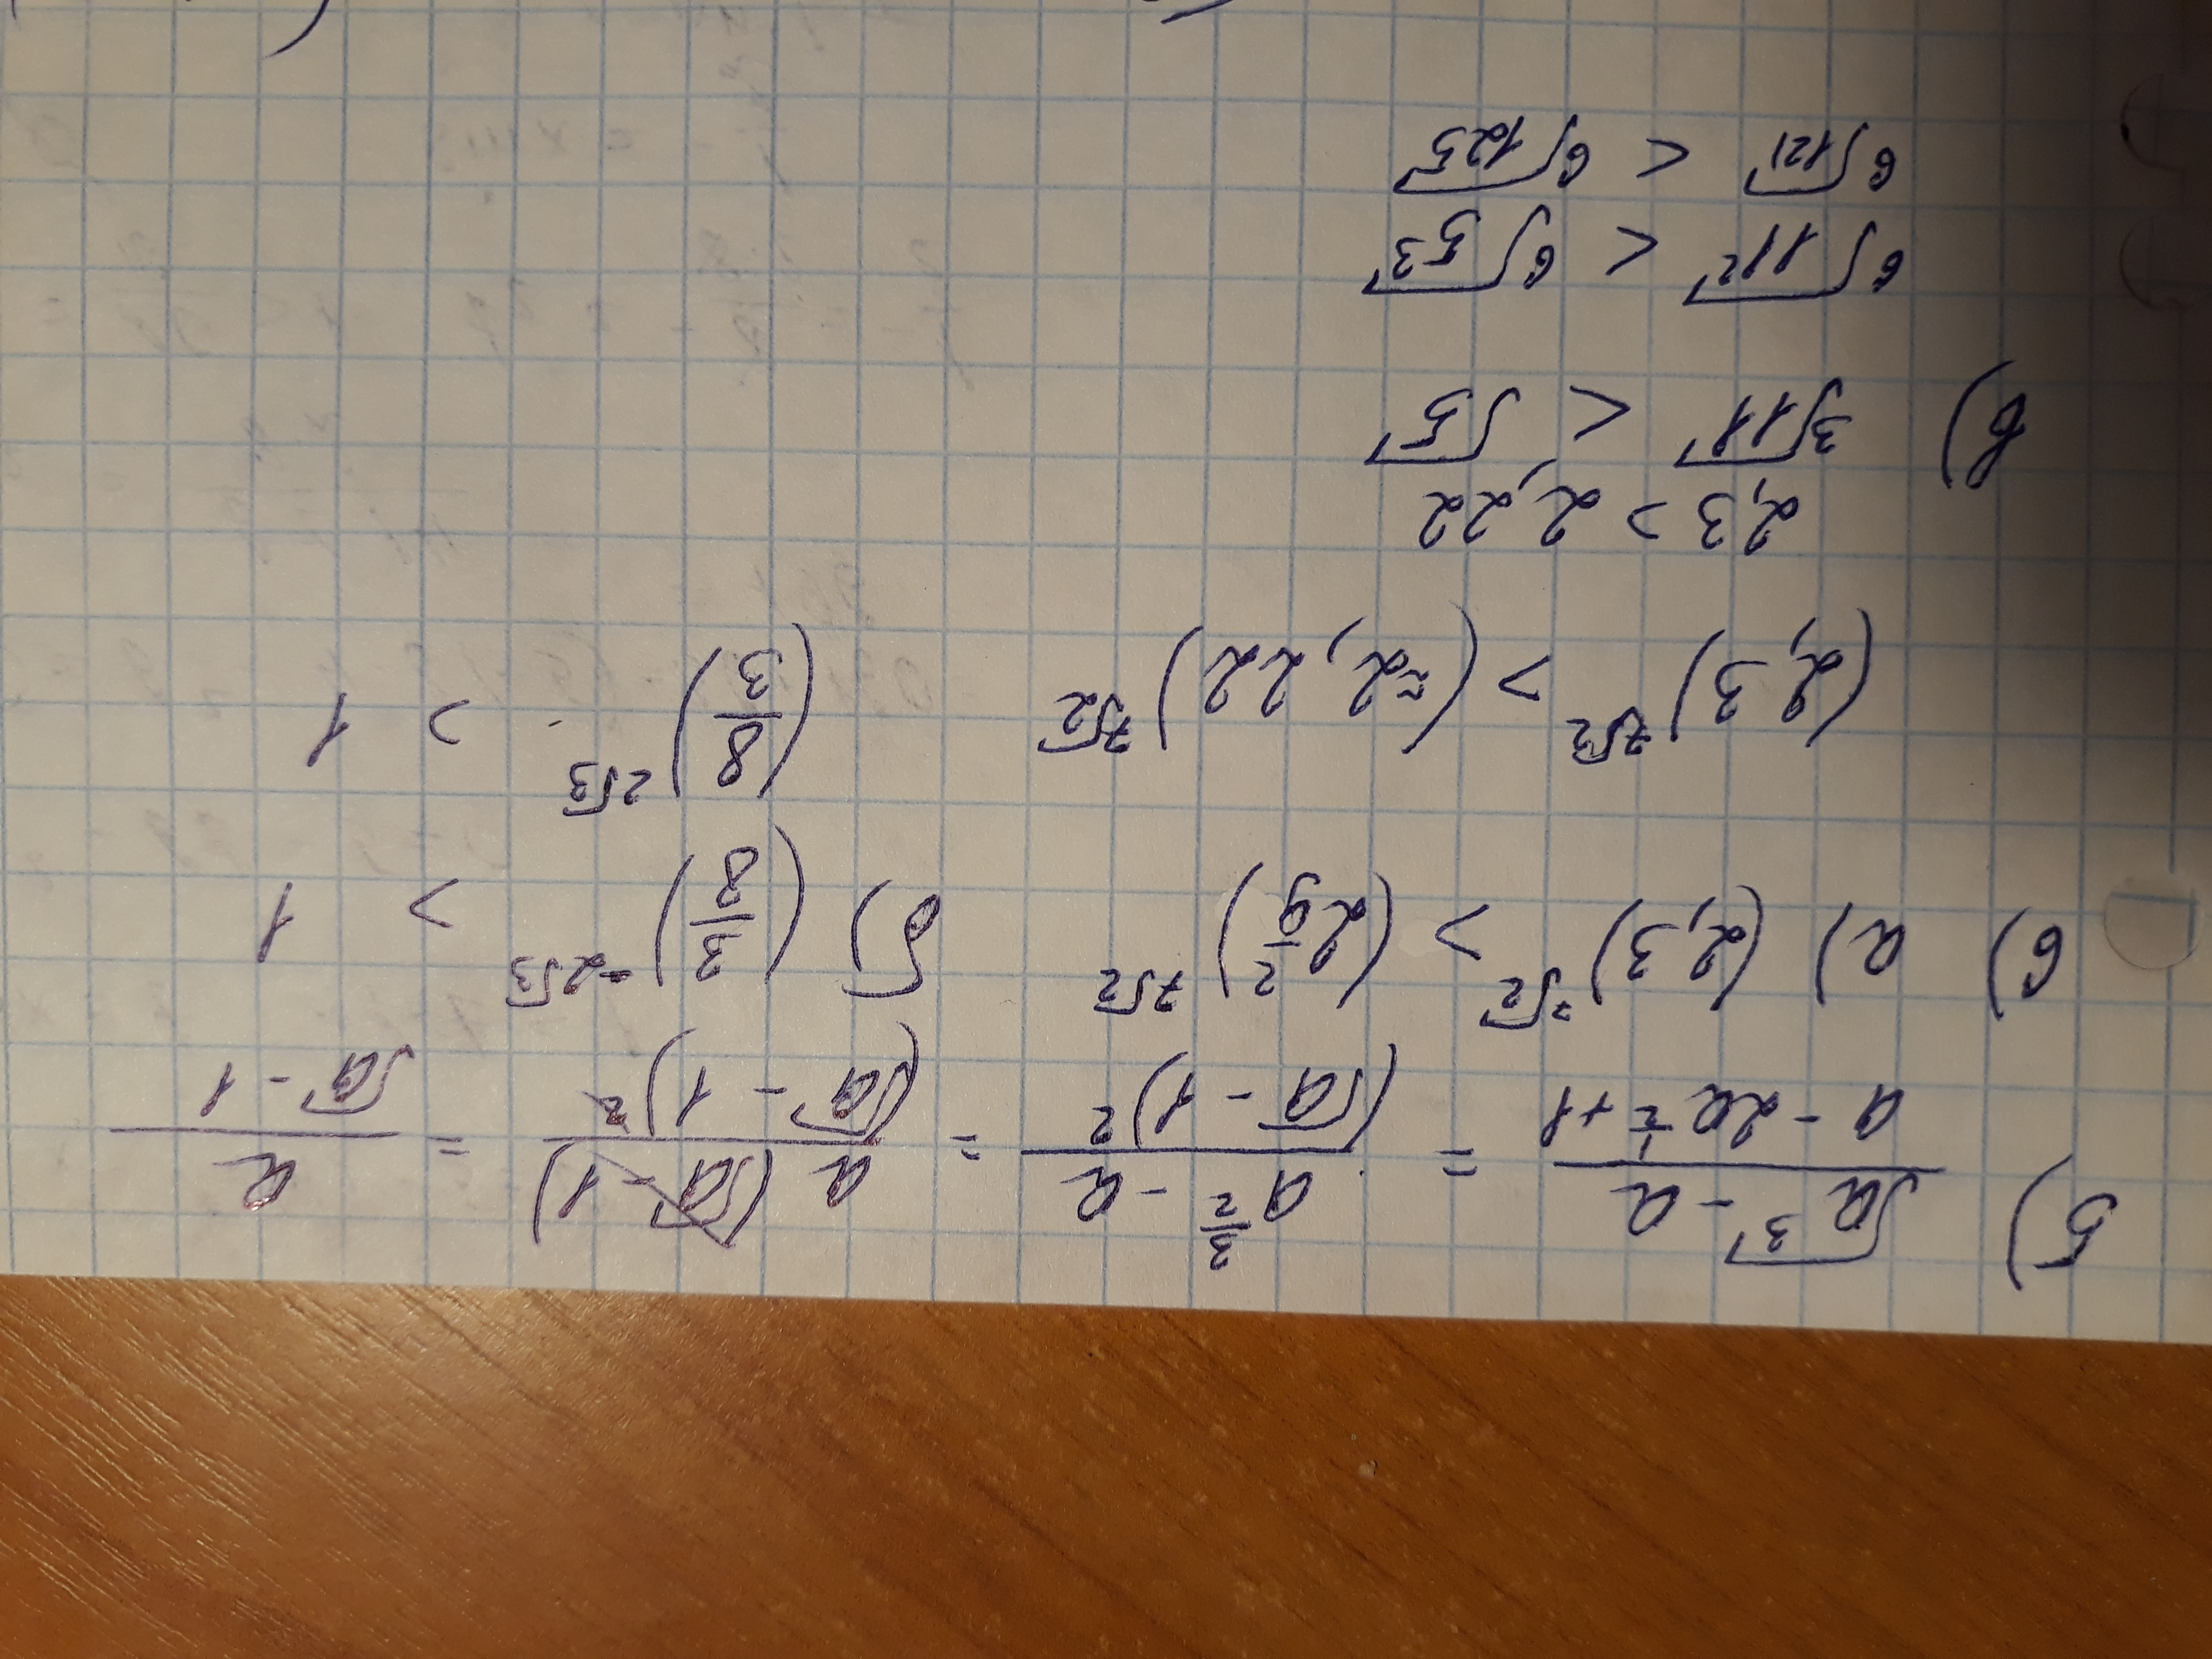 5) (√a³ - a)/(a - 2a^(1/2) + 1) = (a^(3/2) - a)/(√a - 1)² = a(√a - 1)/(√a - 1)² = a/(√a - 1)
6) а) (2,3)^(7√2) > (2 2/9)^(7√2) б) (3/8)^(-2√3) > 1
(2,3)^(7√2) > (≈2,22)^(7√2) (8/3)^(2√3) > 1
2,3 > 2,22
в) ³√11 < √5
⁶√11² < ⁶√5³
⁶√121 < ⁶√125